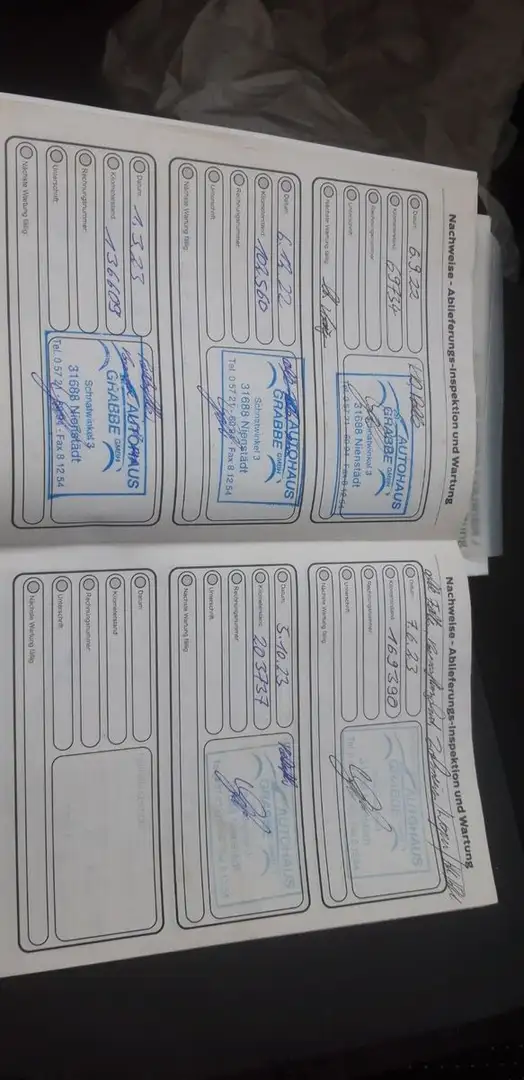 Nachweise - Ablieferungs-Inspektion und Wartung
Datum 6.9.22
Kilometerstand 69754
Rechnungsnummer
Unterschrift
Nächste Wartung fällig
AUTOHAUS
GRABBE GMBH
Schnatwinkel 3
31688 Nienstädt
Datum 6.12.22
Kilometerstand 102560
Rechnungsnummer
Unterschrift
Nächste Wartung fällig
AUTOHAUS
GRABBE GMBH
Schnatwinkel 3
31688 Nienstädt
Tel. 0 57 21 - Fax 8 12 54
Datum 1.3.23
Kilometerstand 136609
Rechnungsnummer
Unterschrift
Nächste Wartung fällig
AUTOHAUS
GRABBE GMBH
Schnatwinkel 3
31688 Nienstädt
Tel. 0 57 21 - Fax 8 12 54
Nachweise - Ablieferungs-Inspektion und Wartung
Datum 7.6.23
Kilometerstand 169390
Rechnungsnummer
Unterschrift
Nächste Wartung fällig
AUTOHAUS
GRABBE
Datum 5.10.23
Kilometerstand 203737
Rechnungsnummer
Unterschrift
Nächste Wartung fällig
AUTOHAUS
GRABBE
Datum
Kilometerstand
Rechnungsnummer
Unterschrift
Nächste Wartung fällig